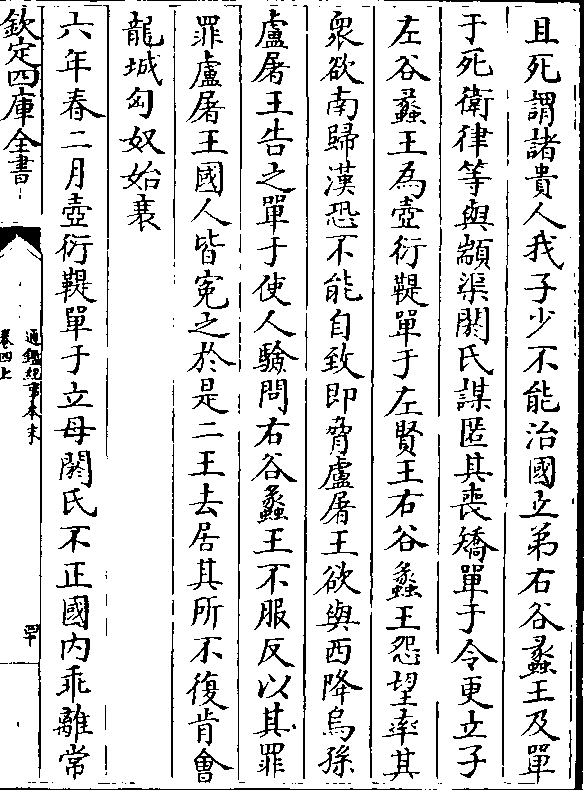 且死謂諸貴人我子少不能治國立弟右谷蠡王及單
于死衛律等與顓渠閼氏謀匿其喪矯單于令更立子
左谷蠡王為壺衍鞮單于左賢王右谷蠡王怨望率其
衆欲南歸漢恐不能自致即脅盧屠王欲與西降烏孫
盧屠王告之單于使人驗問右谷蠡王不服反以其罪
罪盧屠王國人皆寃之於是二王去居其所不復肯會
龍城匈奴始衰
六年春二月壺衍鞮單于立母閼氏不正國内乖離常
欽定四庫全書
通鑑紀事本末
卷四上